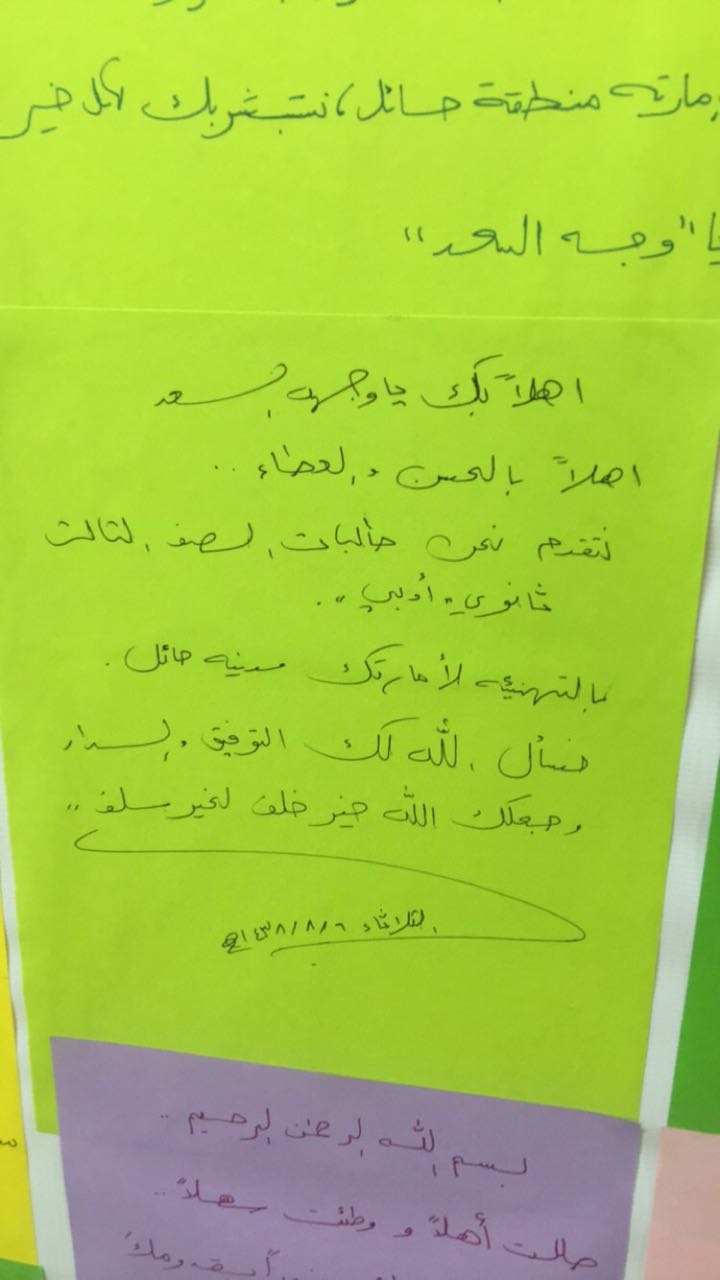 إمارته منطقة حائل، نستبشر بك كل خير
يا "وجه السعد"
اهلاً بك يا وجهه السعد
اهلاً بالحسن والعطاء ..
نتقدم نحن طالبات الصف الثالث
ثانوي "أدبي" .
بالتهنئيه لأمارتك مدينه حائل .
نسأل الله لك التوفيق والسداد
وجعلك الله خير خلف لخير سلف ,,
الثلاثاء ١٤٣٨/٨/٦هـ
بسم الله الرحمن الرحيم ..
حللت أهلاً و وطئت سهلاً ..